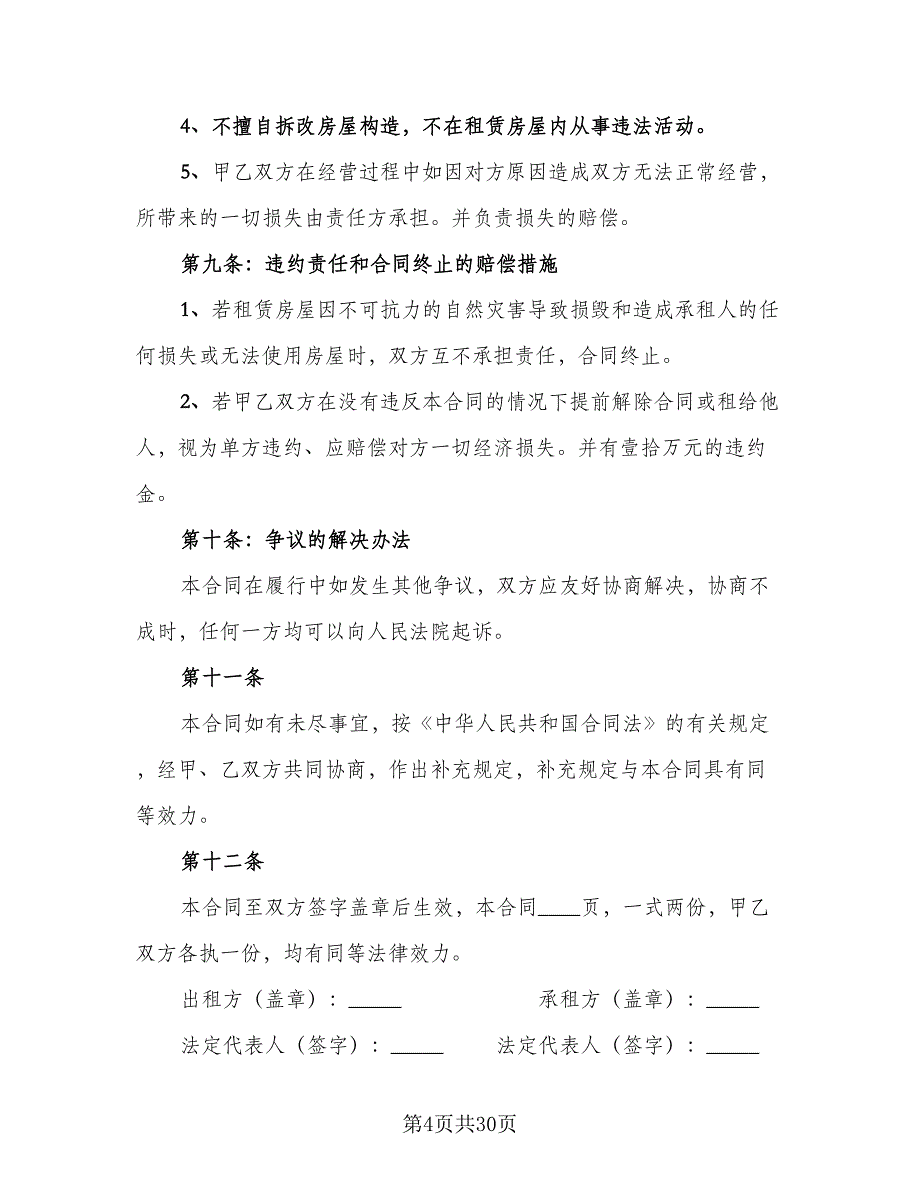 4、不擅自拆改房屋构造，不在租赁房屋内从事违法活动。
5、甲乙双方在经营过程中如因对方原因造成双方无法正常经营，
所带来的一切损失由责任方承担。并负责损失的赔偿。
第九条：违约责任和合同终止的赔偿措施
1、若租赁房屋因不可抗力的自然灾害导致损毁和造成承租人的任
何损失或无法使用房屋时，双方互不承担责任，合同终止。
2、若甲乙双方在没有违反本合同的情况下提前解除合同或租给他
人，视为单方违约、应赔偿对方一切经济损失。并有壹拾万元的违约
金。
第十条：争议的解决办法
本合同在履行中如发生其他争议，双方应友好协商解决，协商不
成时，任何一方均可以向人民法院起诉。
第十一条
本合同如有未尽事宜，按《中华人民共和国合同法》的有关规定
，经甲、乙双方共同协商，作出补充规定，补充规定与本合同具有同
等效力。
第十二条
本合同至双方签字盖章后生效，本合同____页，一式两份，甲乙
双方各执一份，均有同等法律效力。
出租方（盖章）：_____ 承租方（盖章）：_____
法定代表人（签字）：_____ 法定代表人（签字）：_____
第4页共30页